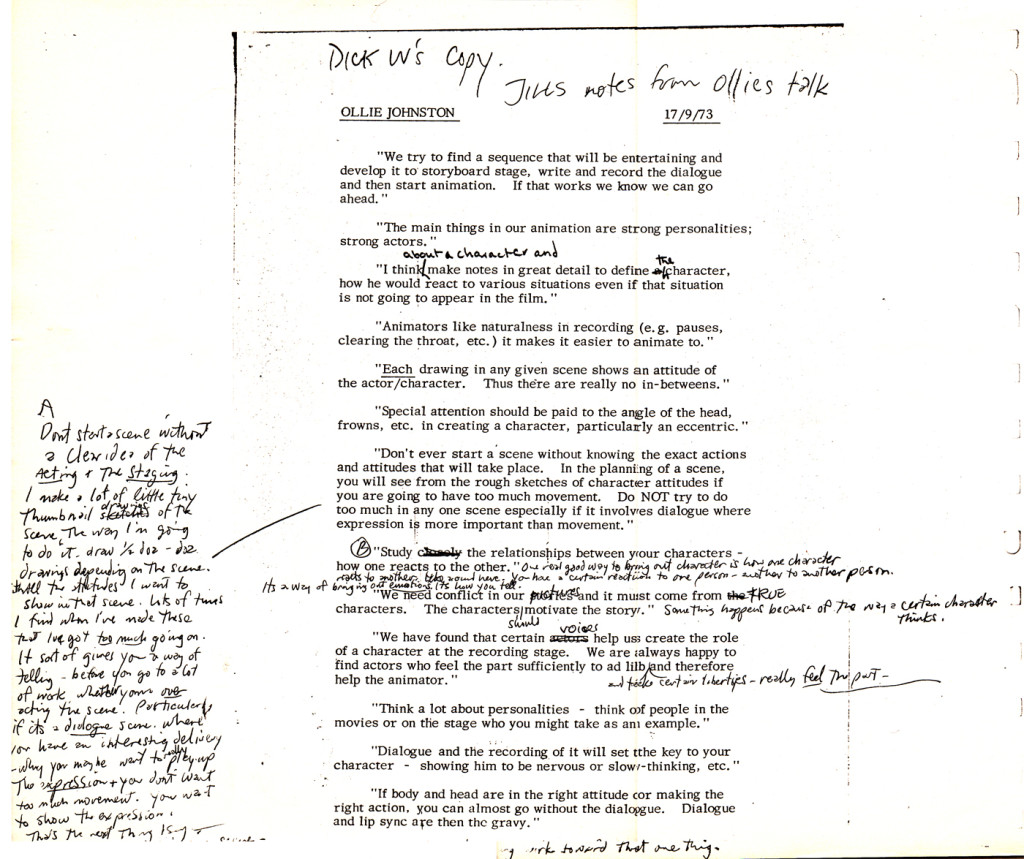 Dick W's Copy.
Jills notes from Ollies talk
OLLIE JOHNSTON 17/9/73
"We try to find a sequence that will be entertaining and
develop it to storyboard stage, write and record the dialogue
and then start animation. If that works we know we can go
ahead."
"The main things in our animation are strong personalities;
strong actors."
about a character and
the
"I think make notes in great detail to define character,
how he would react to various situations even if that situation
is not going to appear in the film."
"Animators like naturalness in recording (e.g. pauses,
clearing the throat, etc.) it makes it easier to animate to."
"Each drawing in any given scene shows an attitude of
the actor/character. Thus there are really no in-betweens."
"Special attention should be paid to the angle of the head,
frowns, etc. in creating a character, particularly an eccentric."
"Don't ever start a scene without knowing the exact actions
and attitudes that will take place. In the planning of a scene,
you will see from the rough sketches of character attitudes if
you are going to have too much movement. Do NOT try to do
too much in any one scene especially if it involves dialogue where
expression is more important than movement."
B "Study closely the relationships between your characters -
how one reacts to the other." "One real good way to bring out character is how one character
reacts to another, take round here, you have a certain reaction to one person - another to another person.
Its a way of bringing out emotions its how you tell.
"We need conflict in our pictures and it must come from the TRUE
characters. The characters motivate the story." Something happens because of the way a certain character
thinks.
should
voices
"We have found that certain actors help uss create the role
of a character at the recording stage. We are always happy to
find actors who feel the part sufficiently to ad lib and therefore
help the animator." and take certain liberties - really feel the part -
"Think a lot about personalities - think oof people in the
movies or on the stage who you might take as ani example."
"Dialogue and the recording of it will set tthe key to your
character - showing him to be nervous or slow-thinking, etc."
"If body and head are in the right attitude cor making the
right action, you can almost go without the dialogue. Dialogue
and lip sync are then the gravy."
work toward that one thing.
A
Dont start a scene without
a clear idea of the
Acting + The Staging.
I make a lot of little tiny
drawings
Thumbnail sketches of the
scene, The way I'm going
to do it. draw 1/2 doz - doz
drawings depending on The scene.
the attitudes I want to
show in that scene. lots of times
I find when I've made these
that I've got too much going on.
It sort of gives you a way of
telling - before you go to a lot
of work whether you're over
acting the scene. Particularly
if its a dialogue scene. Where
you have an interesting delivery
- why you maybe want to really play up
The expression + you don't want
too much movement. You want
to show the expression.
That's the next Thing